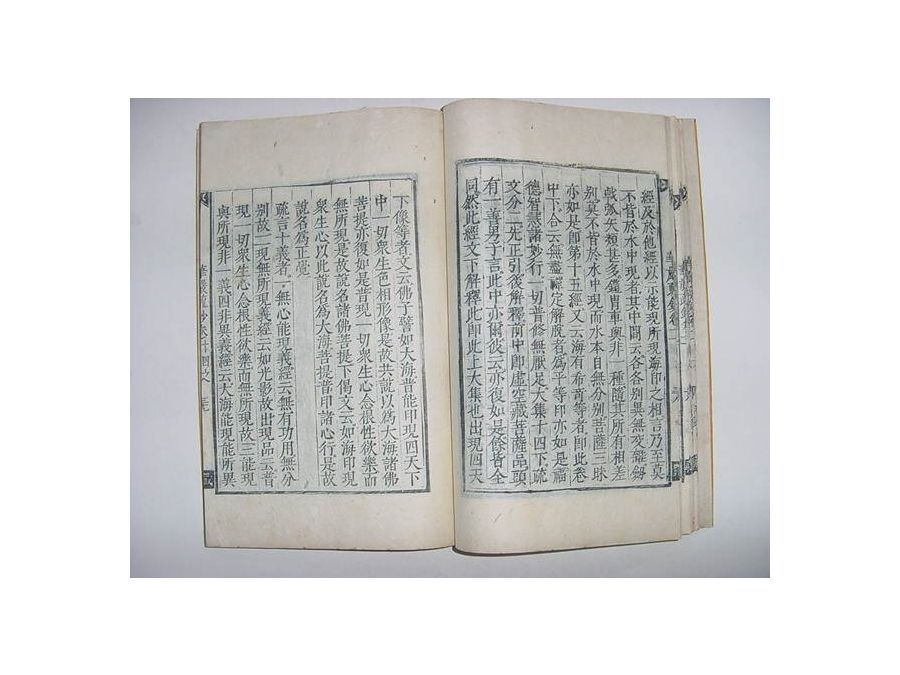 經及於他經以示能現所現海印之相言乃至莫
不皆於水中現者其中間云各各別異無交雜
戟弧矢類甚多鎧胄車輿非一種隨其所有相差
別莫不皆於水中現而水本自無分別菩薩三昧
亦如是即第十五經又云海有希奇等者即此卷
中下合云無盡禪定解脫者為平等印亦如是福
德智慧諸妙行一切普修無厭足大集十四下疏
文分二先正引後解釋前中即虛空藏菩薩品頭
有一善男子言此中亦爾彼云亦復如是餘皆全
同然此經文下解釋此即此上大集也出現四天
下像等者文云佛子譬如大海普能印現四天下
中一切眾生色相形像是故共說以為大海諸佛
菩提亦復如是普現一切眾生心念根性欲樂而
無所現是故說名諸佛菩提下偈文云如海印現
眾生心以此說名為大海菩提普印諸心行是故
說名為正覺
疏言十義者一無心能現義經云無有功用無分
別故二現無所現義經云如光影故出現品云普
現一切眾生心念根性欲樂而無所現故三能現
與所現非一義四非異義經云大海能現能所異
華嚴疏鈔卷